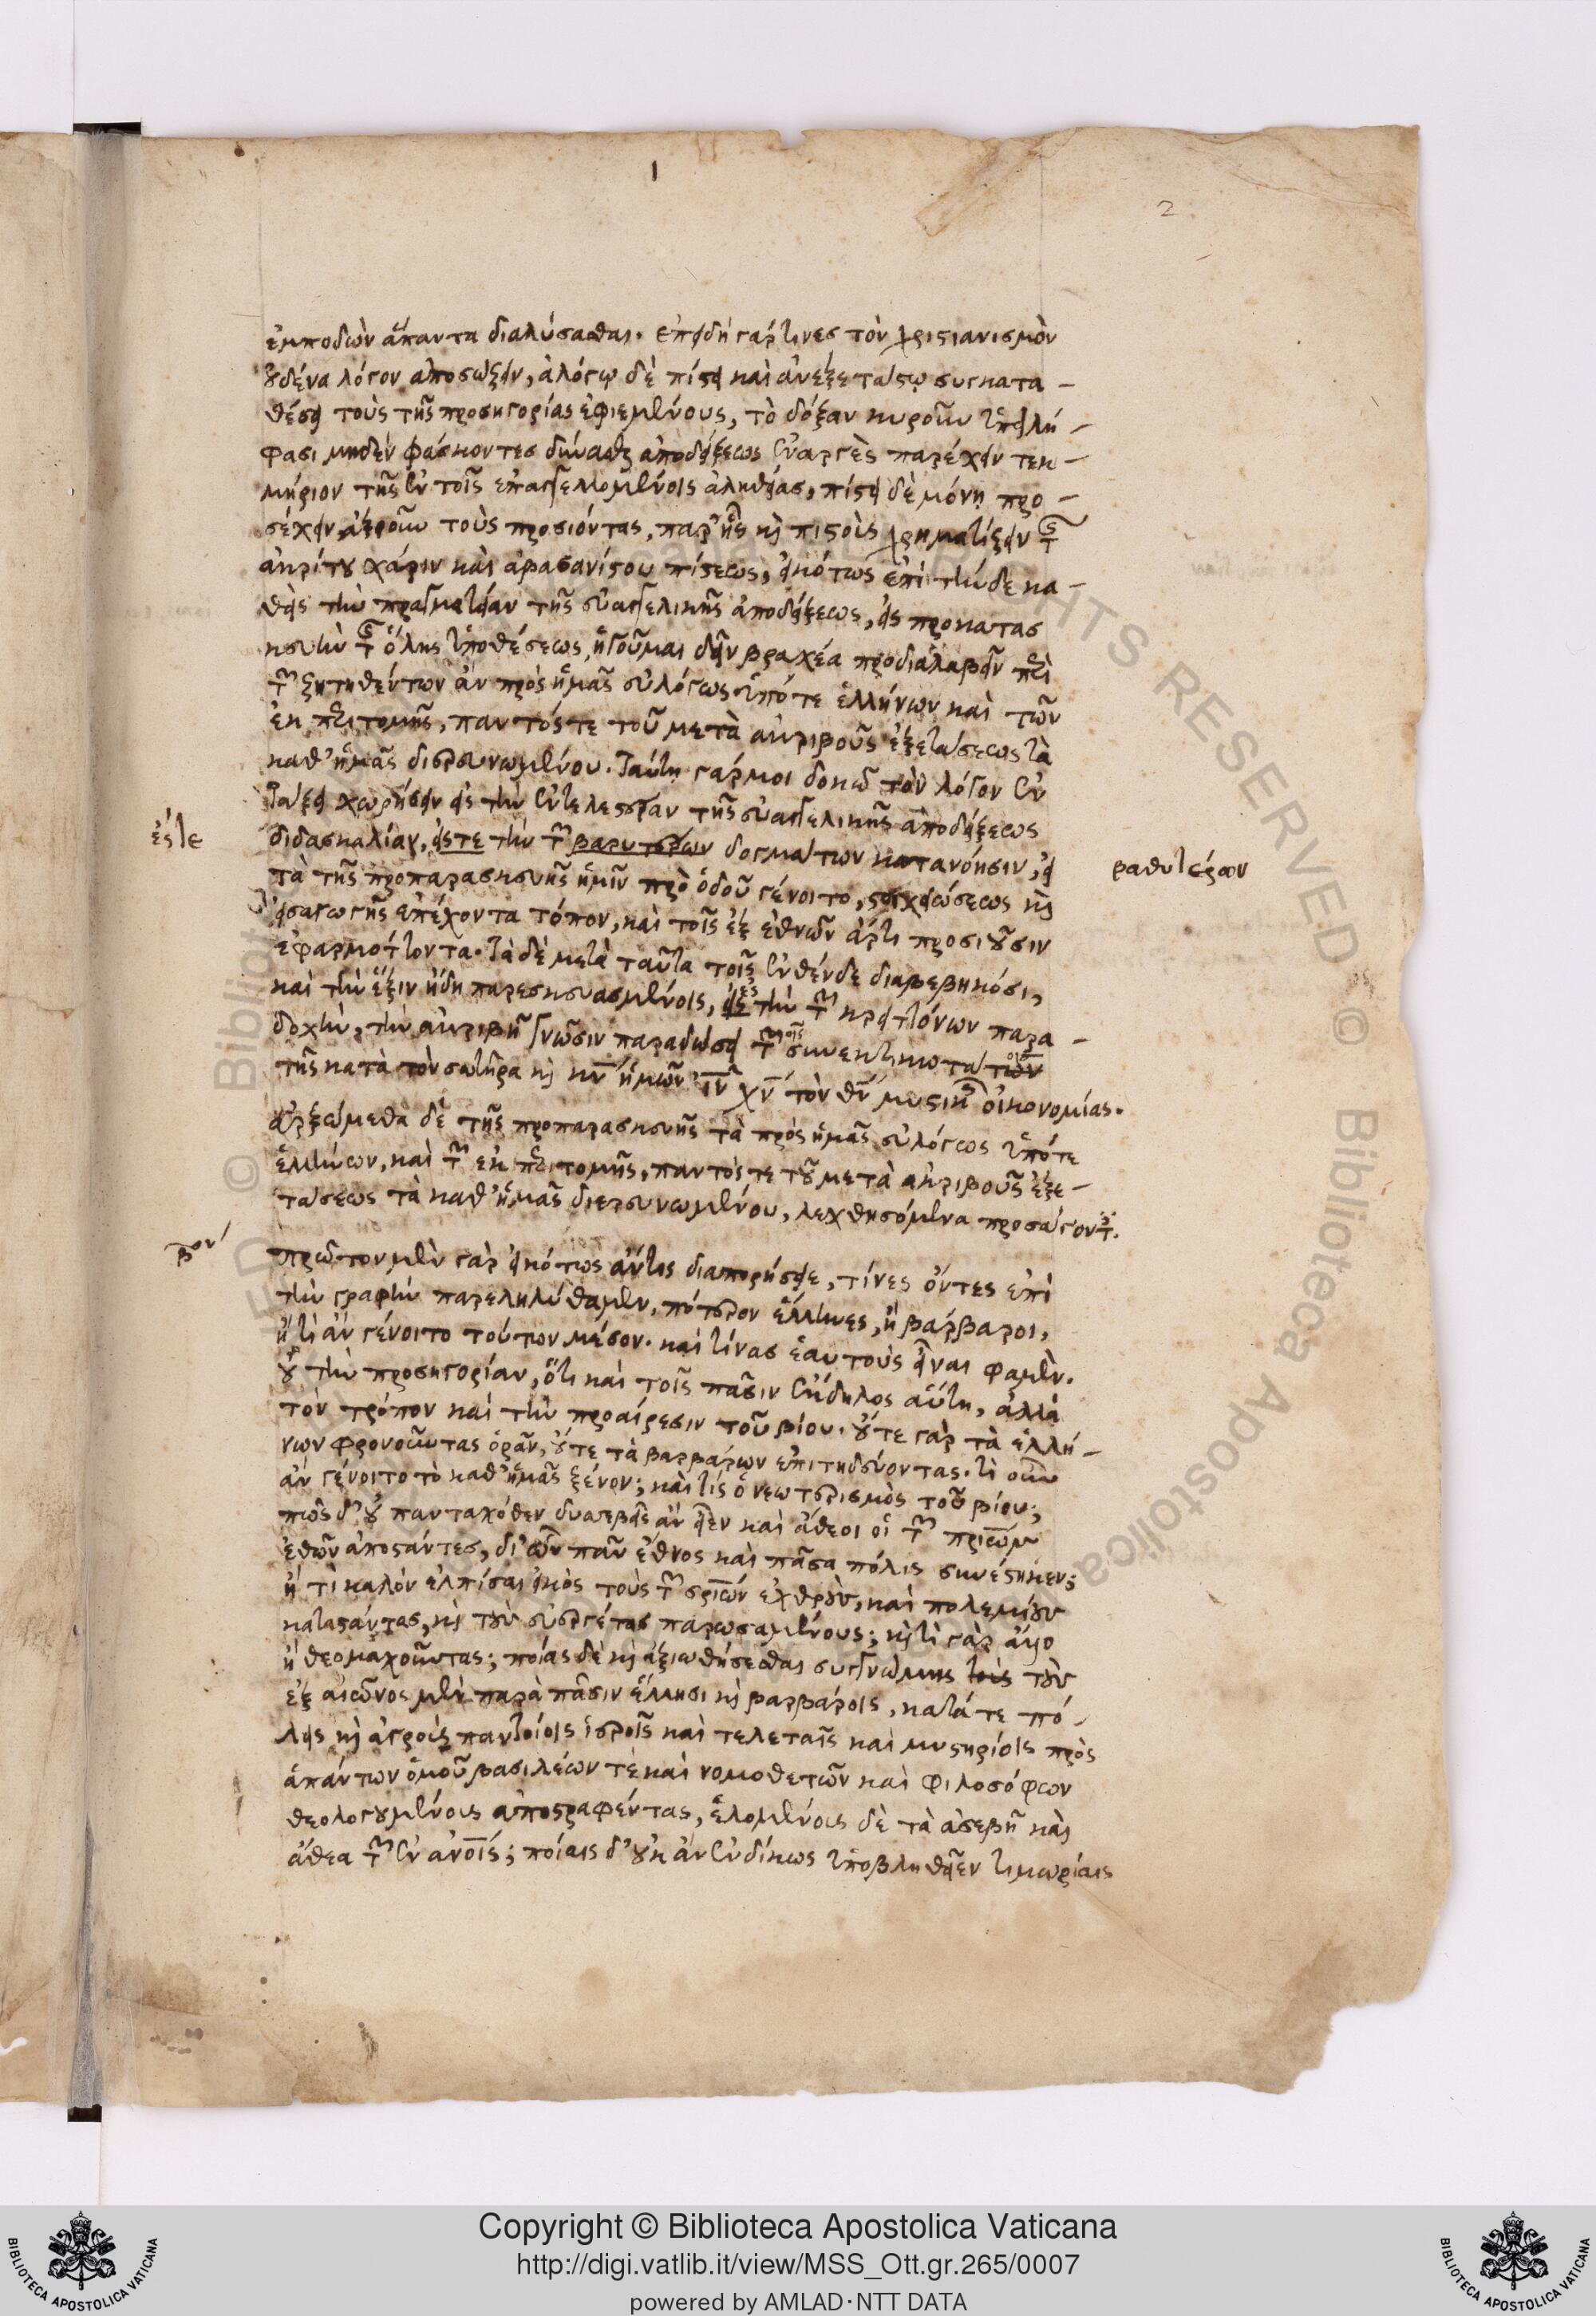 1
2
ἐμποδὼν ἅπαντα διαλύσασθαι. ἐπειδή γάρ τινες τὸν χριστιανισμὸν
οὐδένα λόγον ἀποσώζειν, ἀλόγῳ δὲ πίστει καὶ ἀνεξετάστῳ συγκατα-
θέσει τοὺς τῆς προσηγορίας ἐφιεμένους, τὸ δόξαν κυροῦν ὑπειλή-
φασι μηδὲν φάσκοντες δύνασθαι ἀποδείξεως ἐναργὲς παρέχειν τεκ-
μήριον τῆς ἐν τοῖς ἐπαγγελλομένοις ἀληθείας, πίστει δὲ μόνῃ προ-
σέχειν ἀξιοῦν τοὺς προσιόντας, παρ' ἧς καὶ πιστοὺς χρηματίζειν τῆς
ἀκρίτου χάριν καὶ ἀβασανίστου πίστεως, εἰκότως ἐπὶ τήνδε κα-
θεὶς τὴν πραγματείαν τῆς εὐαγγελικῆς ἀποδείξεως, εἰς προκατασ
κευὴν τῆς ὅλης ὑποθέσεως, ἡγοῦμαι δεῖν βραχέα προδιαλαβεῖν περὶ
τῶν ζητηθέντων ἂν πρὸς ἡμᾶς εὐλόγως ὑπό τε ἑλλήνων καὶ τῶν
ἐκ περιτομῆς, παντός τε τοῦ μετὰ ἀκριβοῦς ἐξετάσεως τὰ
καθ' ἡμᾶς διερευνωμένου. Ταύτῃ γάρ μοι δοκῶ τὸν λόγον ἐν
τάξει χωρήσειν εἰς τὴν ἐντελεστέραν τῆς εὐαγγελικῆς ἀποδείξεως
ἐς τε
διδασκαλίαν, εἴς τε τὴν τῶν βαρυτέρων δογμάτων κατανόησιν, εἰ
βαθυτέρων
τὰ τῆς προπαρασκευῆς ἡμῖν πρὸ ὁδοῦ γένοιτο, στοιχειώσεως καὶ
εἰσαγωγῆς ἐπέχοντα τόπον, καὶ τοῖς ἐξ ἐθνῶν ἄρτι προσιοῦσιν
ἐφαρμόττοντα. Τὰ δὲ μετὰ ταῦτα τοῖς ἐνθένδε διαβεβηκόσι,
καὶ τὴν ἕξιν ἤδη παρεσκευασμένοις, εἰς τὴν τῶν κρειττόνων παρα-
δοχήν, τὴν ἀκριβῆ γνῶσιν παραδώσει τῶν συνεκτικωτάτων
τῆς κατὰ τὸν σωτῆρα καὶ κν ἡμῶν ιν χν τὸν θν μυστικῆς οἰκονομίας.
ἀρξώμεθα δὲ τῆς προπαρασκευῆς τὰ πρὸς ἡμᾶς εὐλόγως ὑπό τε
ἑλλήνων, καὶ τῶν ἐκ περιτομῆς, παντός τε τοῦ μετὰ ἀκριβοῦς ἐξε-
τάσεως τὰ καθ' ἡμᾶς διερευνωμένου, λεχθησόμενα προσάγοντες.
βον
πρῶτον μὲν γὰρ εἰκότως ἄν τις διαπορήσειε, τίνες ὄντες ἐπὶ
τὴν γραφὴν παρεληλύθαμεν, πότερον ἕλληνες, ἢ βάρβαροι,
ἢ τί ἂν γένοιτο τούτων μέσον. καὶ τίνας ἑαυτοὺς εἶναι φαμὲν.
οὐ τὴν προσηγορίαν, ὅτι καὶ τοῖς πᾶσιν ἔκδηλος αὕτη, ἀλλὰ
τὸν τρόπον καὶ τὴν προαίρεσιν τοῦ βίου. οὔτε γὰρ τὰ ἑλλή-
νων φρονοῦντας ὁρᾶν, οὔτε τὰ βαρβάρων ἐπιτηδεύοντας. τί οὖν
ἂν γένοιτο τὸ καθ' ἡμᾶς ξένον; καὶ τίς ὁ νεωτερισμὸς τοῦ βίου;
πῶς δ' οὐ πανταχόθεν δυσσεβεῖς ἂν εἶεν καὶ ἄθεοι οἱ τῶν πρίων
ἐθῶν ἀποστάντες, δι' ὧν πᾶν ἔθνος καὶ πᾶσα πόλις συνέστηκεν;
ἢ τί καλὸν ἐλπίσαι εἰκὸς τοὺς τῶν σριῶν ἐχθροὺς, καὶ πολεμίους
καταστάντας, καὶ τοὺς εὐεργέτας παρωσαμένους; καὶ τί γὰρ ἄλλο
ἢ θεομαχοῦντας; ποίας δὲ καὶ ἀξιωθήσεσθαι συγγνώμης τοὺς
ἐξ αἰῶνος μὲν παρὰ πᾶσιν ἕλλησι καὶ βαρβάροις, κατά τε πό-
λεις καὶ ἀγροὺς παντοίοις ἱεροῖς καὶ τελεταῖς καὶ μυστηρίοις πρὸς
ἁπάντων ὁμοῦ βασιλέων τὲ καὶ νομοθετῶν καὶ φιλοσόφων
θεολογουμένους ἀποστραφέντας, ἑλομένους δὲ τὰ ἀσεβῆ καὶ
ἄθεα τῶν ἐν ἀνοις; ποίαις δ' οὐκ ἂν ἐνδίκως ὑποβληθεῖεν τιμωρίαις
Copyright © Biblioteca Apostolica Vaticana
http://digi.vatlib.it/view/MSS_Ott.gr.265/0007
powered by AMLAD·NTT DATA